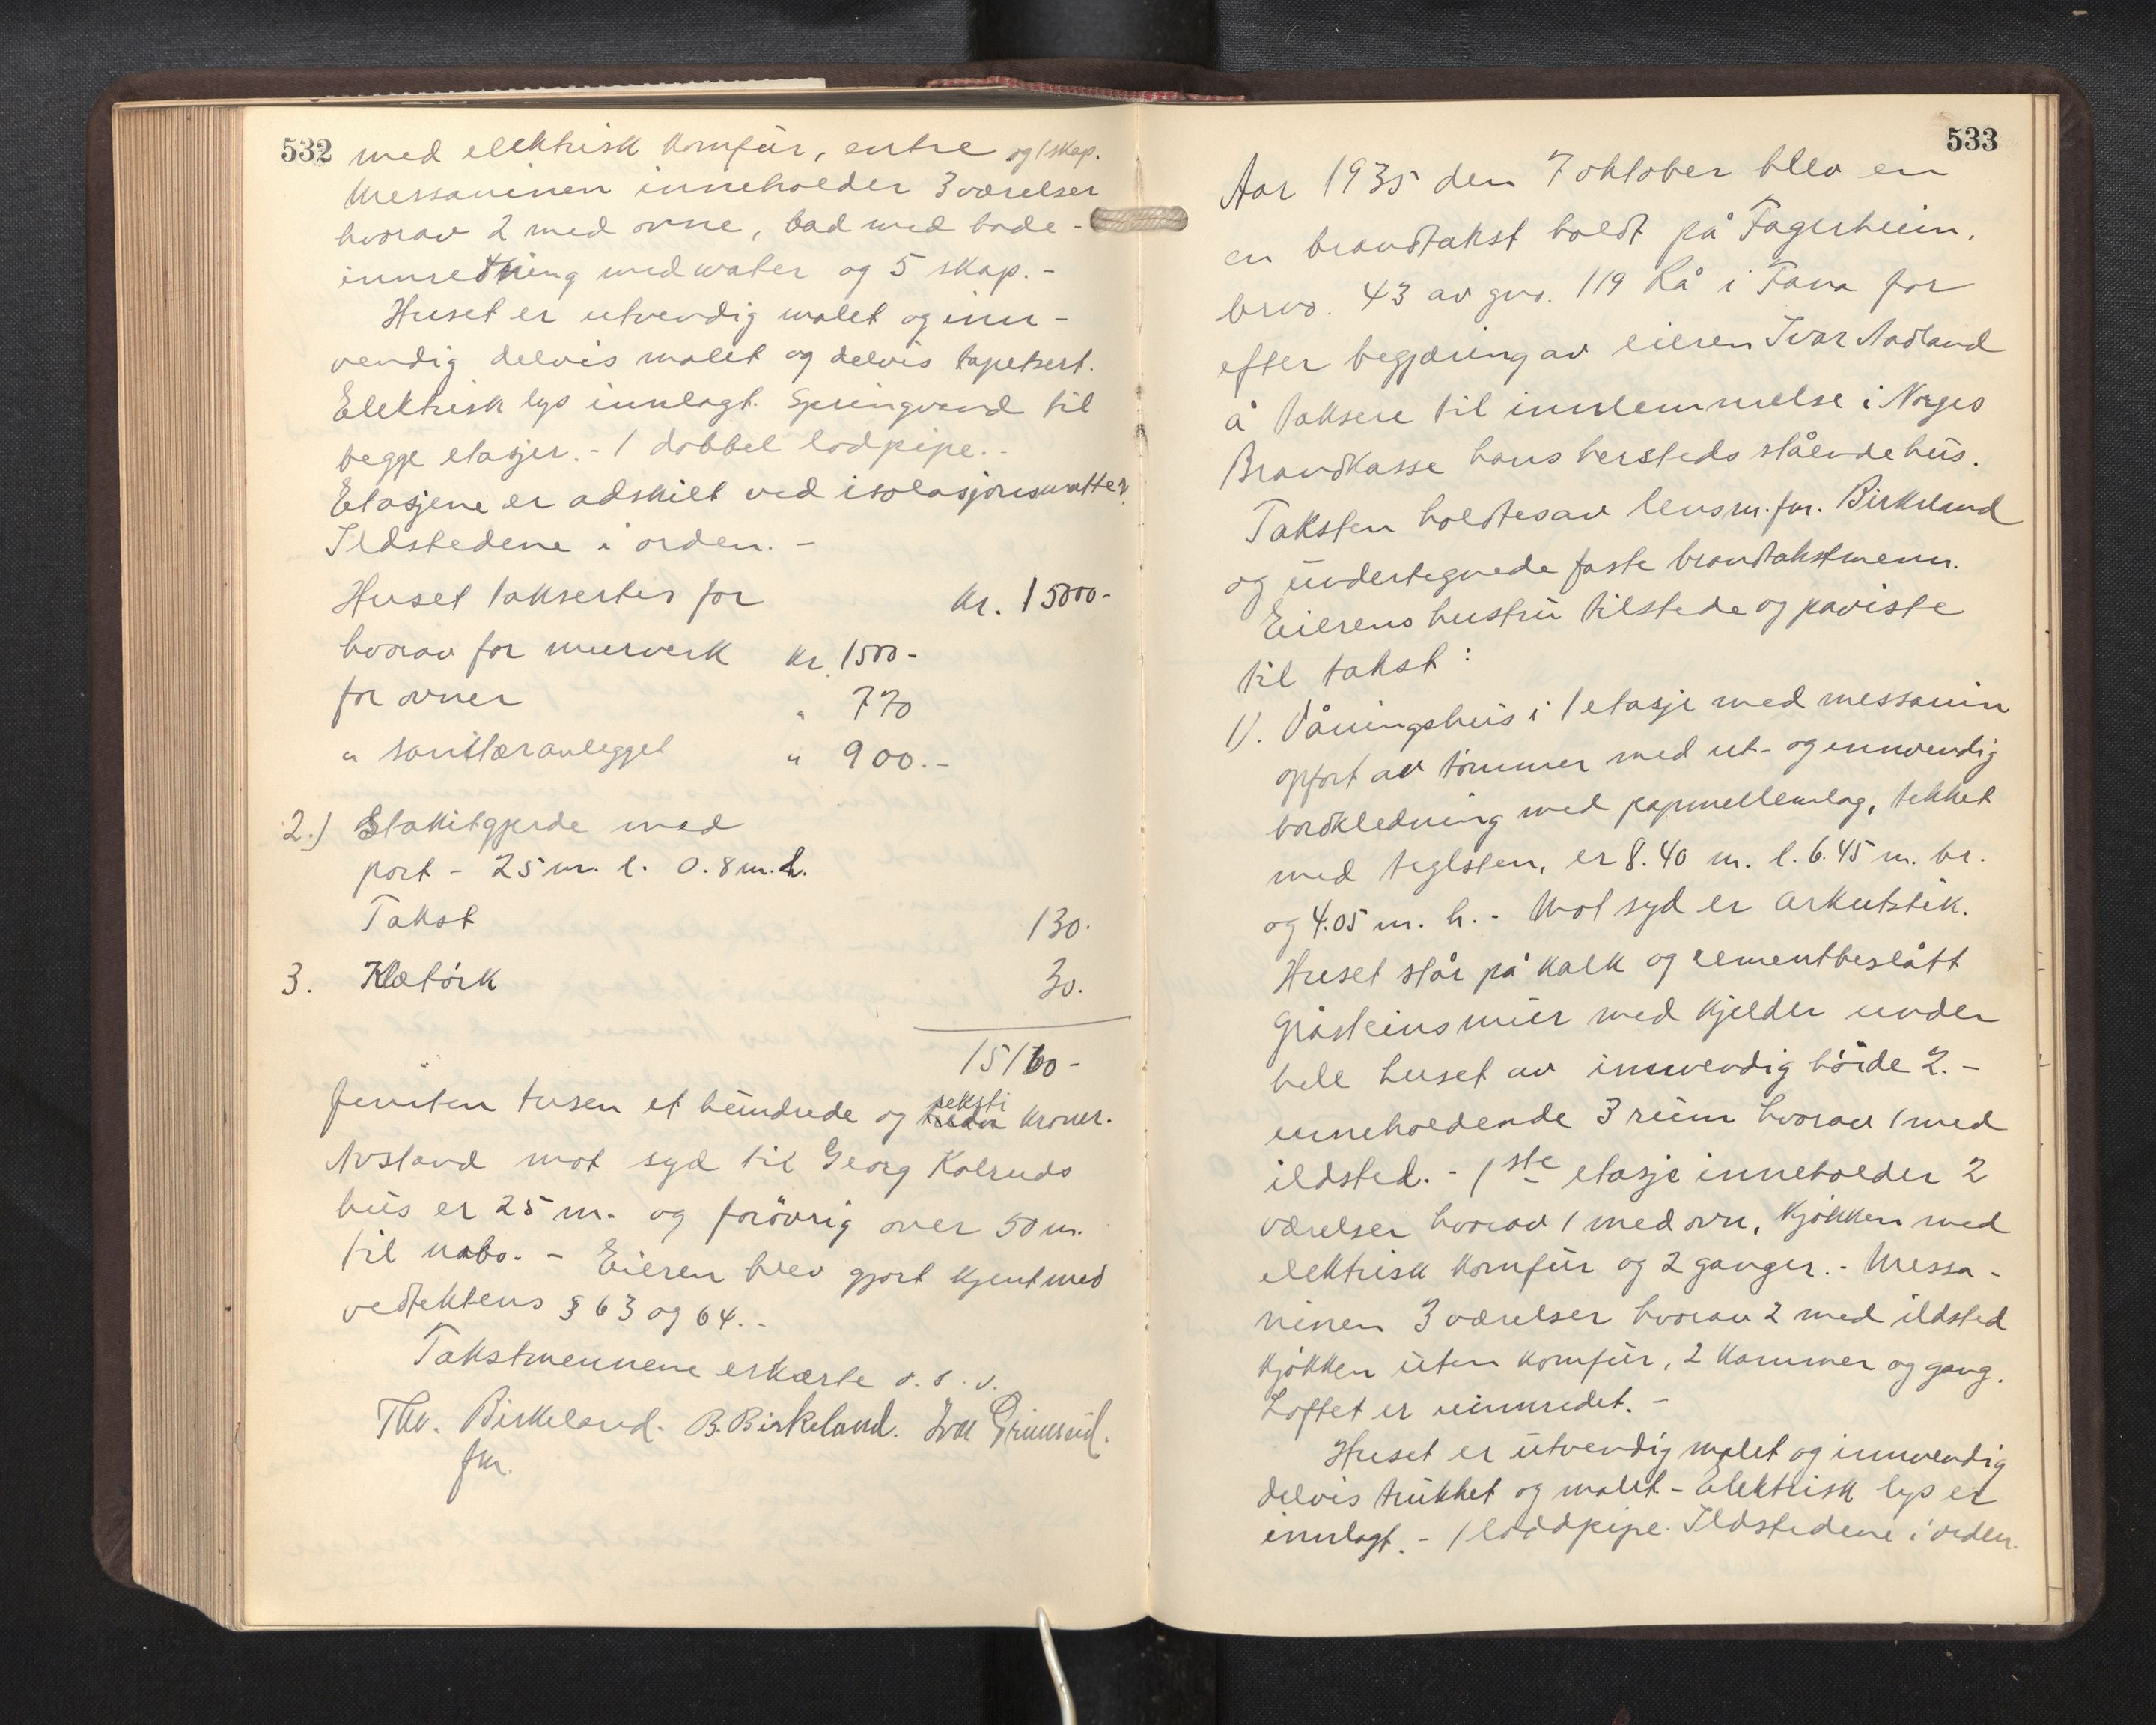 532
med elektrisk komfür, entre og 1 skap.
Messaninen inneholder 3 værelser
hvorav 2 med ovne, bad med bade-
innredning med water og 5 skap.-
Huset er utvendig malet og inn-
vendig delvis malet og delvis tapetsert.
Elektrisk lys innlagt. Springvand til
begge etasjer.- 1 dobbel lodpipe.-
Etasjene er adskilt ved isolasjonsmatter.
Ildstedene i orden.-
Huset taksertes for kr. 15000-
hvorav for murverk kr. 1500-
for ovner " 770
" sanitæranlegget " 900.-
2.) Stakitgjerde med
port - 25 m. l. 0.8 m. h.
Takst 130.
3. Klætörk 30.
15160-
femten tusen et hündrede og seksti kroner.
Avstand mot syd til Georg Kolruds
hüs er 25 m. og forövrig over 50 m.
til nabo. - Eieren blev gjort kjent med
vedtektens § 63 og 64.-
Takstmennene erkærte o. s. v.
Thv. Birkeland. B. Birkeland. Ivar Grimseid.
fm.
533
Aar 1935 den 7 oktober blev en
en brandtakst holdt på Fagerheim,
brno. 43 av gno. 119 Rå i Fana for
efter begjæring av eieren Ivar Aadland
å taksere til innlemmelse i Norges
Brandkasse hans hersteds stående hüs.
Taksten holdtes av lensm. fm. Birkeland
og ündertegnede faste brandtakstmenn.
Eierens hustrü tilstede og paviste
til takst:
1). Våningshüs i 1 etasje med messanin
opført av tømmer med ut- og innvendig
bordkledning med papmellemlag, tekket
med teglsten, er 8.40 m. l. 6.45 m. br.
og 4.05 m. h.- Mot syd er arkutstik.
Huset står på kalk og cementbeslått
gråsteinsmür med kjelder under
hele huset av innvendig höide 2.-
inneholdende 3 rüm hvorav 1 med
ildsted.- 1ste etasje inneholder 2
værelser hvorav 1 med ovn, kjøkken med
elektrisk komfür og 2 ganger.- Messa-
ninen 3 værelser hvorav 2 med ildsted
kjøkken üten komfür, 2 kammer og gang.
Loftet er uinnredet.-
Huset er ütvendig malet og innvendig
delvis trükket og malet - Elektrisk lys er
innlagt.- 1 loddpipe. Ildstedene i orden.